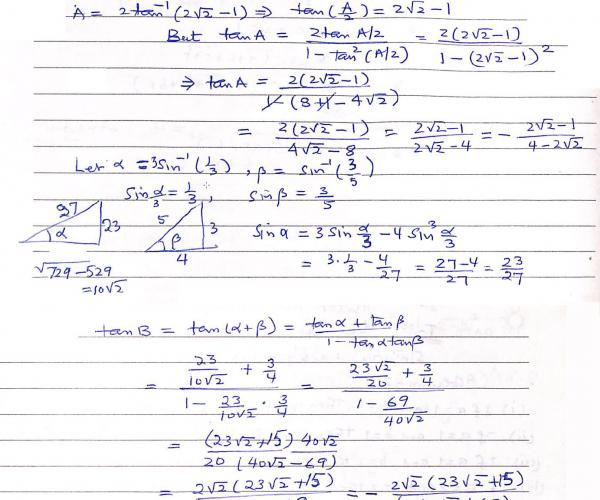 A = 2tan⁻¹(2√2 −1) ⇒ tan(A/2) = 2√2 − 1
But tanA = 2tan A/2 / 1 − tan²(A/2) = 2(2√2−1) / 1 − (2√2−1)²
⇒ tanA = 2(2√2−1) / 1 − (8+1−4√2)
= 2(2√2−1) / 4√2−8 = 2√2−1 / 2√2−4 = − 2√2−1 / 4−2√2
Let α = 3sin⁻¹(1/3), β = sin⁻¹(3/5)
sin α/3 = 1/3, sinβ = 3/5
27 23 α
5 3 β 4
sinα = 3 sin α/3 − 4 sin³ α/3
√729−529
= 10√2
= 3·1/3 − 4/27 = 27−4 / 27 = 23/27
tanB = tan(α+β) = tanα + tanβ / 1−tanα tanβ
= 23/10√2 + 3/4 / 1 − 23/10√2 · 3/4 = 23√2/20 + 3/4 / 1 − 69/40√2
= (23√2+15) 40√2 / 20 (40√2−69)
= 2√2 (23√2+15) = − 2√2 (23√2+15)